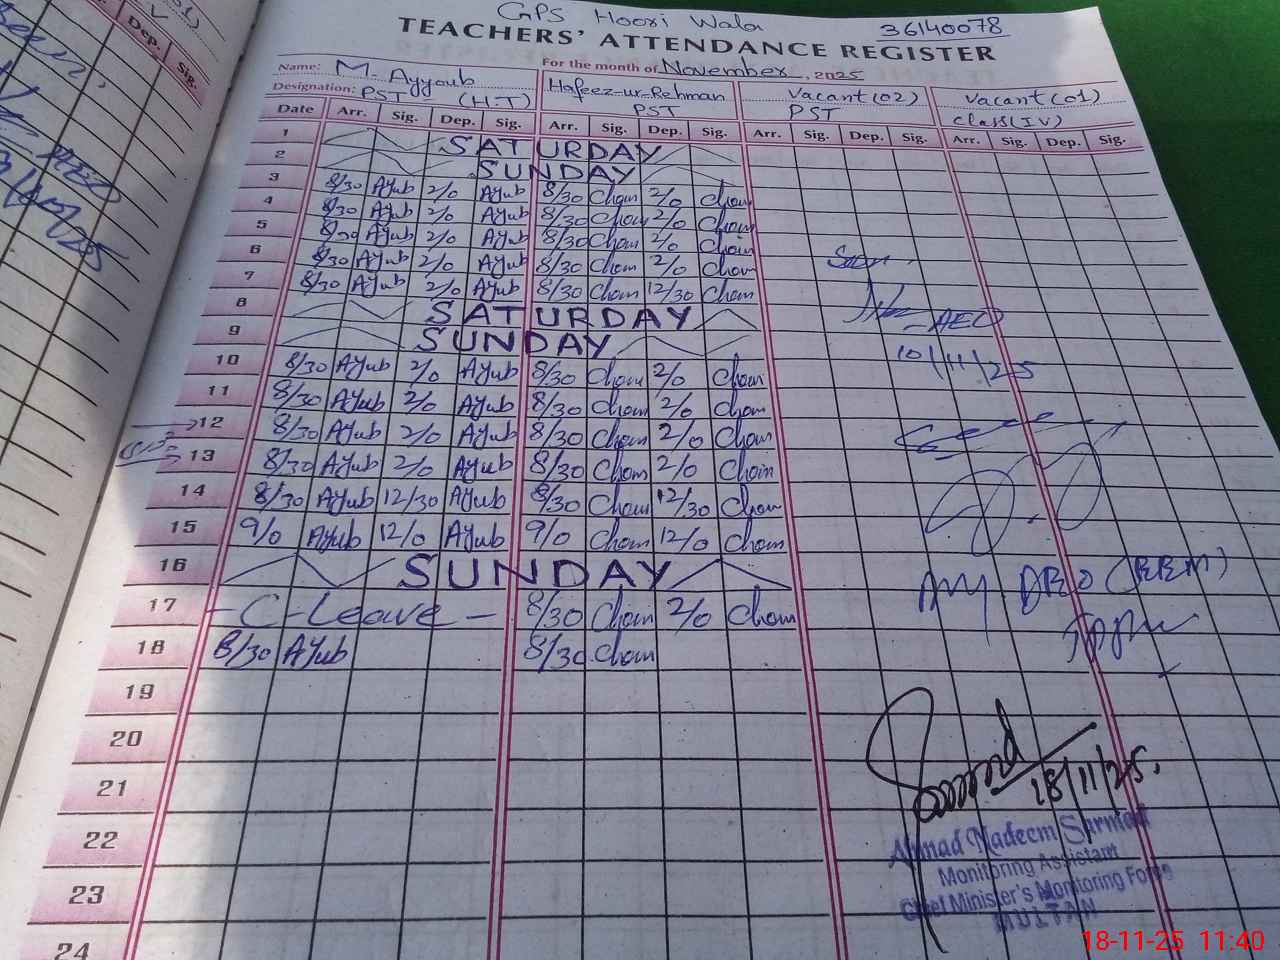 GPS Hoori Wala 36140078
TEACHERS' ATTENDANCE REGISTER
For the month of November, 2025
Name: M. Ayyoub Hafeez-ur-Rehman Vacant (02) Vacant (01)
Designation: PST - (H.T) PST PST Class (IV)
Date Arr. Sig. Dep. Sig. Arr. Sig. Dep. Sig. Arr. Sig. Dep. Sig. Arr. Sig. Dep. Sig.
1 SATURDAY
2 SUNDAY
3 8/30 Ayub 2/0 Ayub 8/30 Cham 2/0 Cham
4 8/30 Ayub 2/0 Ayub 8/30 Cham 2/0 Cham
5 8/30 Ayub 2/0 Ayub 8/30 Cham 2/0 Cham
6 8/30 Ayub 2/0 Ayub 8/30 Cham 2/0 Cham
7 8/30 Ayub 2/0 Ayub 8/30 Cham 12/30 Cham
8 SATURDAY
9 SUNDAY
10 8/30 Ayub 2/0 Ayub 8/30 Cham 2/0 Cham
11 8/30 Ayub 2/0 Ayub 8/30 Cham 2/0 Cham
12 8/30 Ayub 2/0 Ayub 8/30 Cham 2/0 Cham
13 8/30 Ayub 2/0 Ayub 8/30 Cham 2/0 Cham
14 8/30 Ayub 12/30 Ayub 8/30 Cham 12/30 Cham
15 9/0 Ayub 12/0 Ayub 9/0 Cham 12/0 Cham
16 SUNDAY
17 - C-Leave - 8/30 Cham 2/0 Cham
18 8/30 Ayub 8/30 Cham
19
20
21
22
23
24
Seen
- AEO
10/11/25
18/11/25.
Ahmad Nadeem Sarmad
Monitoring Assistant
Chief Minister's Monitoring Force
MULTAN
Dep. Sig.
18-11-25 11:40